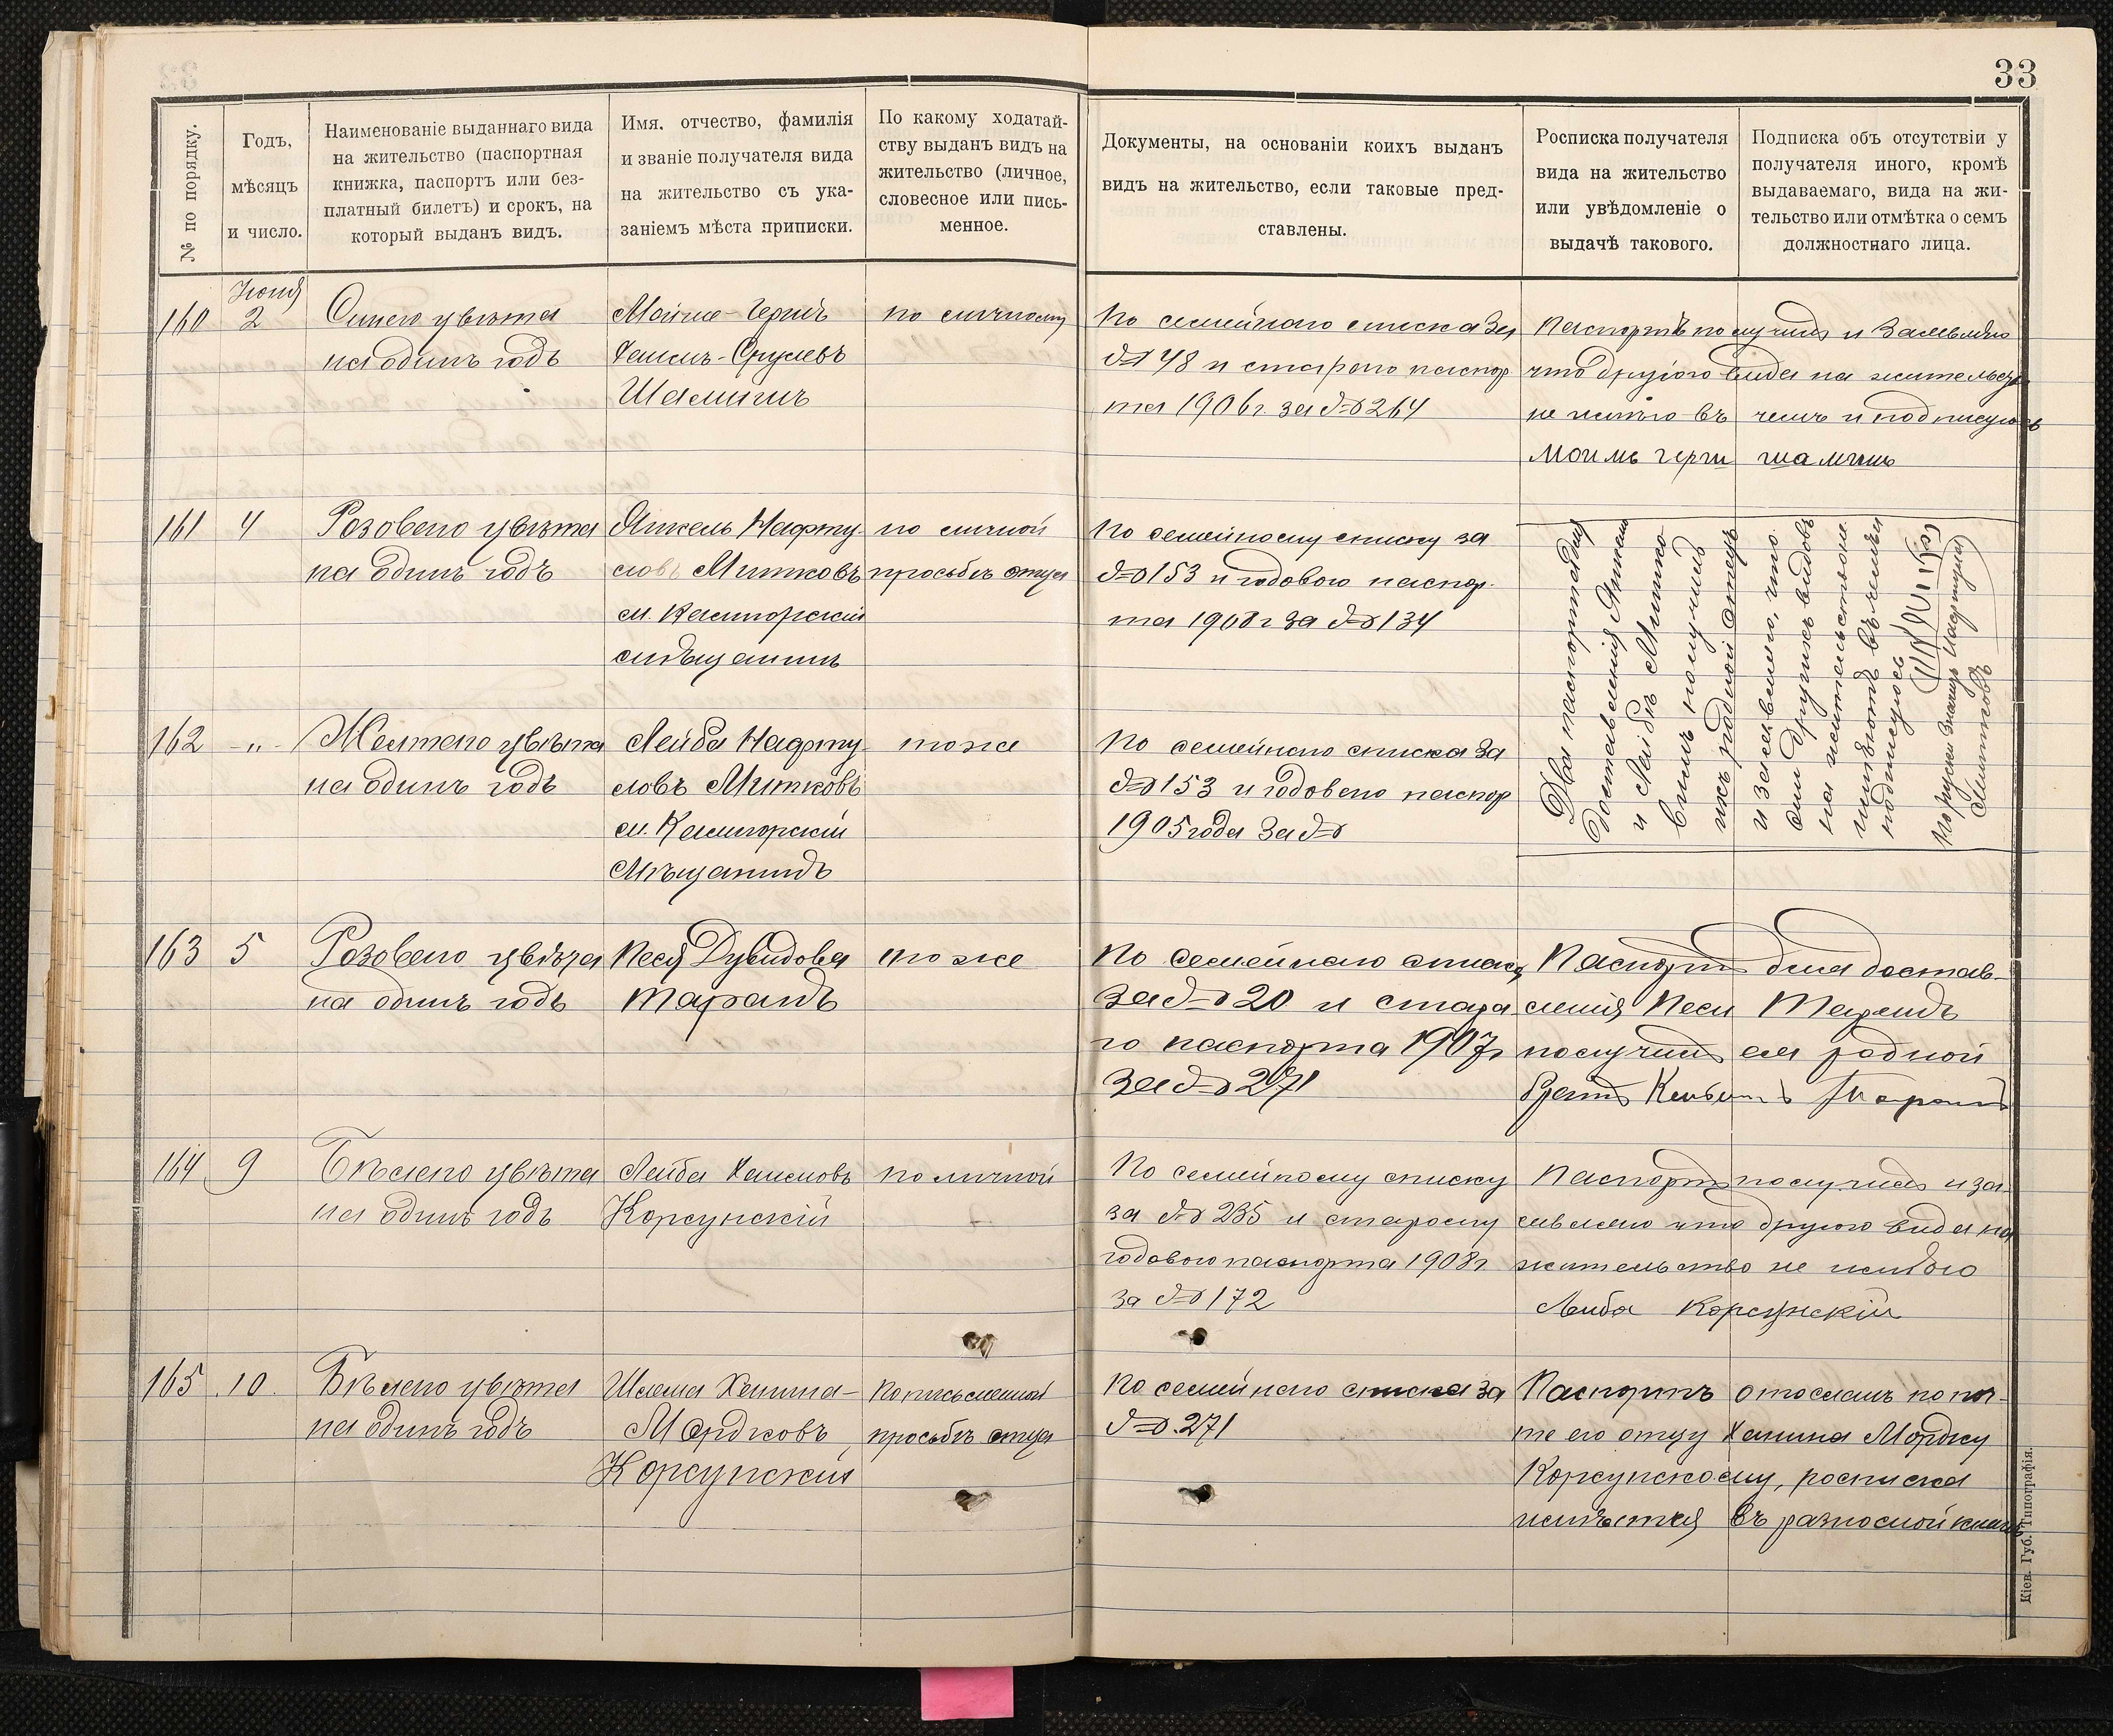 33
№ по порядку.
Годъ,
мѣсяцъ
и число.
Наименованіе выданнаго вида
на жительство (паспортная
книжка, паспортъ или без-
платный билетъ) и срокъ, на
который выданъ видъ.
Имя, отчество, фамилія
и званіе получателя вида
на жительство съ ука-
заніемъ мѣста приписки.
По какому ходатай-
ству выданъ видъ на
жительство (личное,
словесное или пись-
менное.
Документы, на основаніи коихъ выданъ
видъ на жительство, если таковые пред-
ставлены.
Росписка получателя
вида на жительство
или увѣдомленіе о
выдачѣ такового.
Подписка объ отсутствіи у
получателя иного, кромѣ
выдаваемаго, вида на жи-
тельство или отмѣтка о семъ
должностнаго лица.
Іюня
160
2
Синего цвѣта
на одинъ годъ
Мойше-Гершъ
Хаимъ-Срулевъ
Шамшинъ
по личному
По семейнаго списка за
№ 48 и старого паспор
та 1906 г. за № 264
паспортъ получилъ и заявляю
что другого вида на жительство
не имѣю въ чемъ и подписуюсь
161
4
Розового цвѣта
на одинъ годъ
Янкель Нафту-
ловъ Митковъ
м. Кашорскій
мѣщанинъ
по личной
просьбѣ отца
По семейному списку за
№ 153 и годового паспор-
та 1908 г за № 134
162
-"-
Желтого цвѣта
на одинъ годъ
Лейба Нафту-
ловъ Митковъ
м.
Мѣщанинъ
тоже
По семейнаго списка за
№ 153 и годового паспор
1905 года за №
Два паспорта для
доставленія Янкелю
и Лейбѣ Митко-
вимъ получилъ
ихъ родной отецъ
и заявляю, что
они другихъ видовъ
на жительство не
имѣютъ въ чемъ и
подписуюсь
Митковъ
163
5
Розового цвѣта
на одинъ годъ
Песя Дувидова
Таранъ
тоже
По семейнаго списку
за № 20 и стара
го паспорта 1907 г
за № 271
Паспортъ для достав-
ленія Песи Таранъ
получилъ ея родной
братъ Таранъ
164
9
Бѣлого цвѣта
на одинъ годъ
Лейба Хаимовъ
Корсунскій
по личной
По семейному списку
за № 235 и старому
годового паспорта 1908 г
за № 172
Паспортъ получилъ и за-
являю что другого вида на
жительство не имѣю
Лейба Корсунскій
165
10
Бѣлого цвѣта
на одинъ годъ
Шлема Ханина-
Мордковъ
Корсунскій
По письменной
просьбѣ отца
По семейнаго списка за
№ 271
Паспортъ отосланъ по поч-
те его отцу Ханина Мордку
Корсунскому, росписка
имѣется въ разносной книгѣ
Кіев. Губ. Типографія.